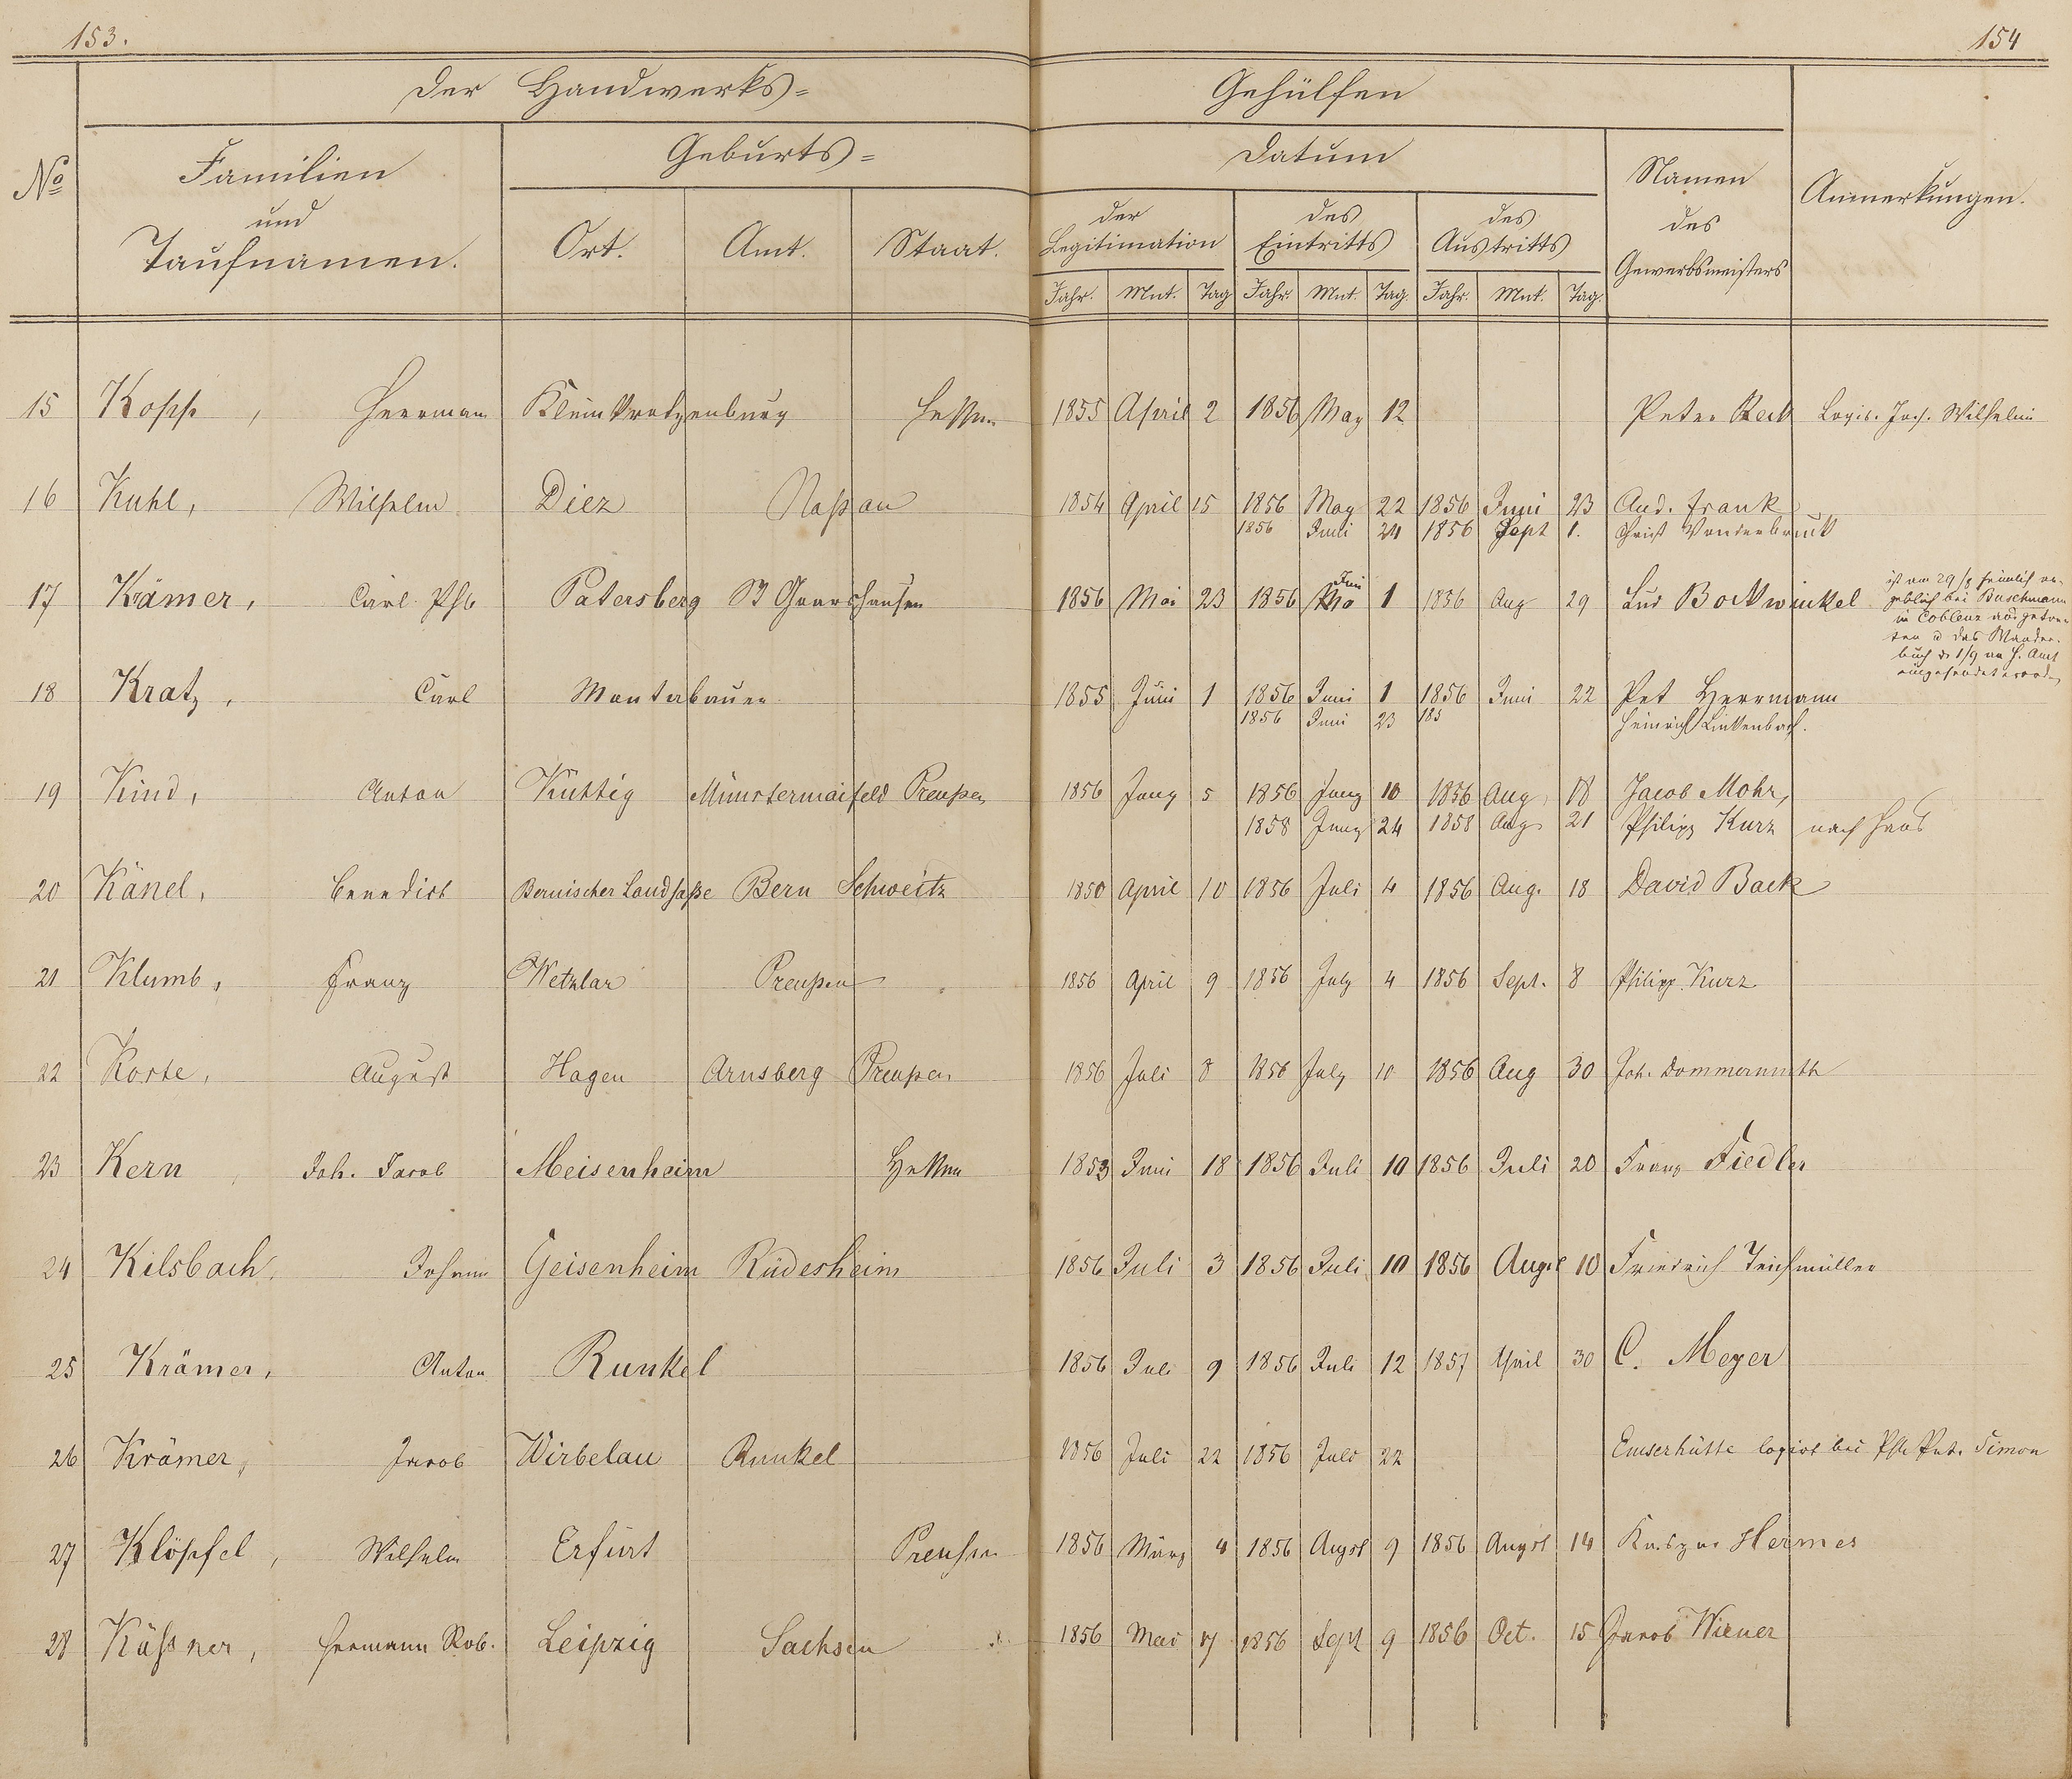 153.
154
Der Handwerks=
Gehülfen
No
Familien
und
Taufnamen.
Geburts=
Ort.
Amt.
Staat.
Datum
der
Legitimation
des
Eintritts
des
Austritts
Jahr. Mnt. Tag Jahr. Mnt. Tag. Jahr. Mnt. Tag.
Namen
des
Gewerbsmeisters
Anmerkungen.
15 Kopp, Herrman Klein Krotzenburg Hessen 1855 April 2 1856 May 12 Peter Logis. Wilhelm
16 Kuhl, Wilhelm Diez Nassau 1854 April 15 1856 May 22 1856 Juni 23 And. Frank
1856 Juni 24 1856 Sept 1. Christ Vonderbruck
17 Krämer, Carl Phl Patersberg St Goarshausen 1856 Mai 23 1856 Juni 1 1856 Aug 29 Lud Bockwinkel
ist am 29/8 heimlich an-
geblich bei Buschmann
in Coblenz eingetre-
ten u das Wander-
buch d 1/9 an H. Amt
eingesendet word.
18 Kratz, Carl Montabauer 1855 Juni 1 1856 Juni 1 1856 Juni 22 Pet Herrmann
1856 Juni 23 185 Heinrich Linkenbach.
19 Kind, Anton Küttig Münstermaifeld Preußen 1856 Juny 5 1856 Juny 10 1856 Aug 18 Jacob Mohr,
1858 Juny 24 1858 Aug 21 Philipp Kurz nach Haus
20 Känel, Benedict Bernischer Landsaße Bern Schweitz 1850 April 10 1856 Juli 4 1856 Aug. 18 David Back
21 Klumb, Franz Wetzlar Preußen 1856 April 9 1856 July 4 1856 Sept. 8 Philipp Kurz
22 Korte, August Hagen Arnsberg Preußen 1856 Juli 8 1856 July 10 1856 Aug 30 Joh. Dommermuth
23 Kern, Joh. Jacob Meisenheim Hessen 1853 Juni 18 1856 Juli 10 1856 Juli 20 Franz Fiedler
24 Kilsbach, Johann Geisenheim Rüdesheim 1856 Juli 3 1856 Juli 10 1856 Augst 10 Friedrich Teichmüller
25 Krämer, Anton Runkel 1856 Juli 9 1856 Juli 12 1857 April 30 C. Meyer
26 Krämer, Jacob Wirbelau Runkel 1856 Juli 22 1856 Juli 22 Emserhütte logirt bei Phl. Pet. Simon
27 Klöpfel, Wilhelm Erfurt Preußen 1856 März 4 1856 Augst 9 1856 Augst 14 Hermes
28 Käßner, Hermann Rob. Leipzig Sachsen 1856 Mai 17 1856 Sept 9 1856 Oct. 15 Jacob Wiener